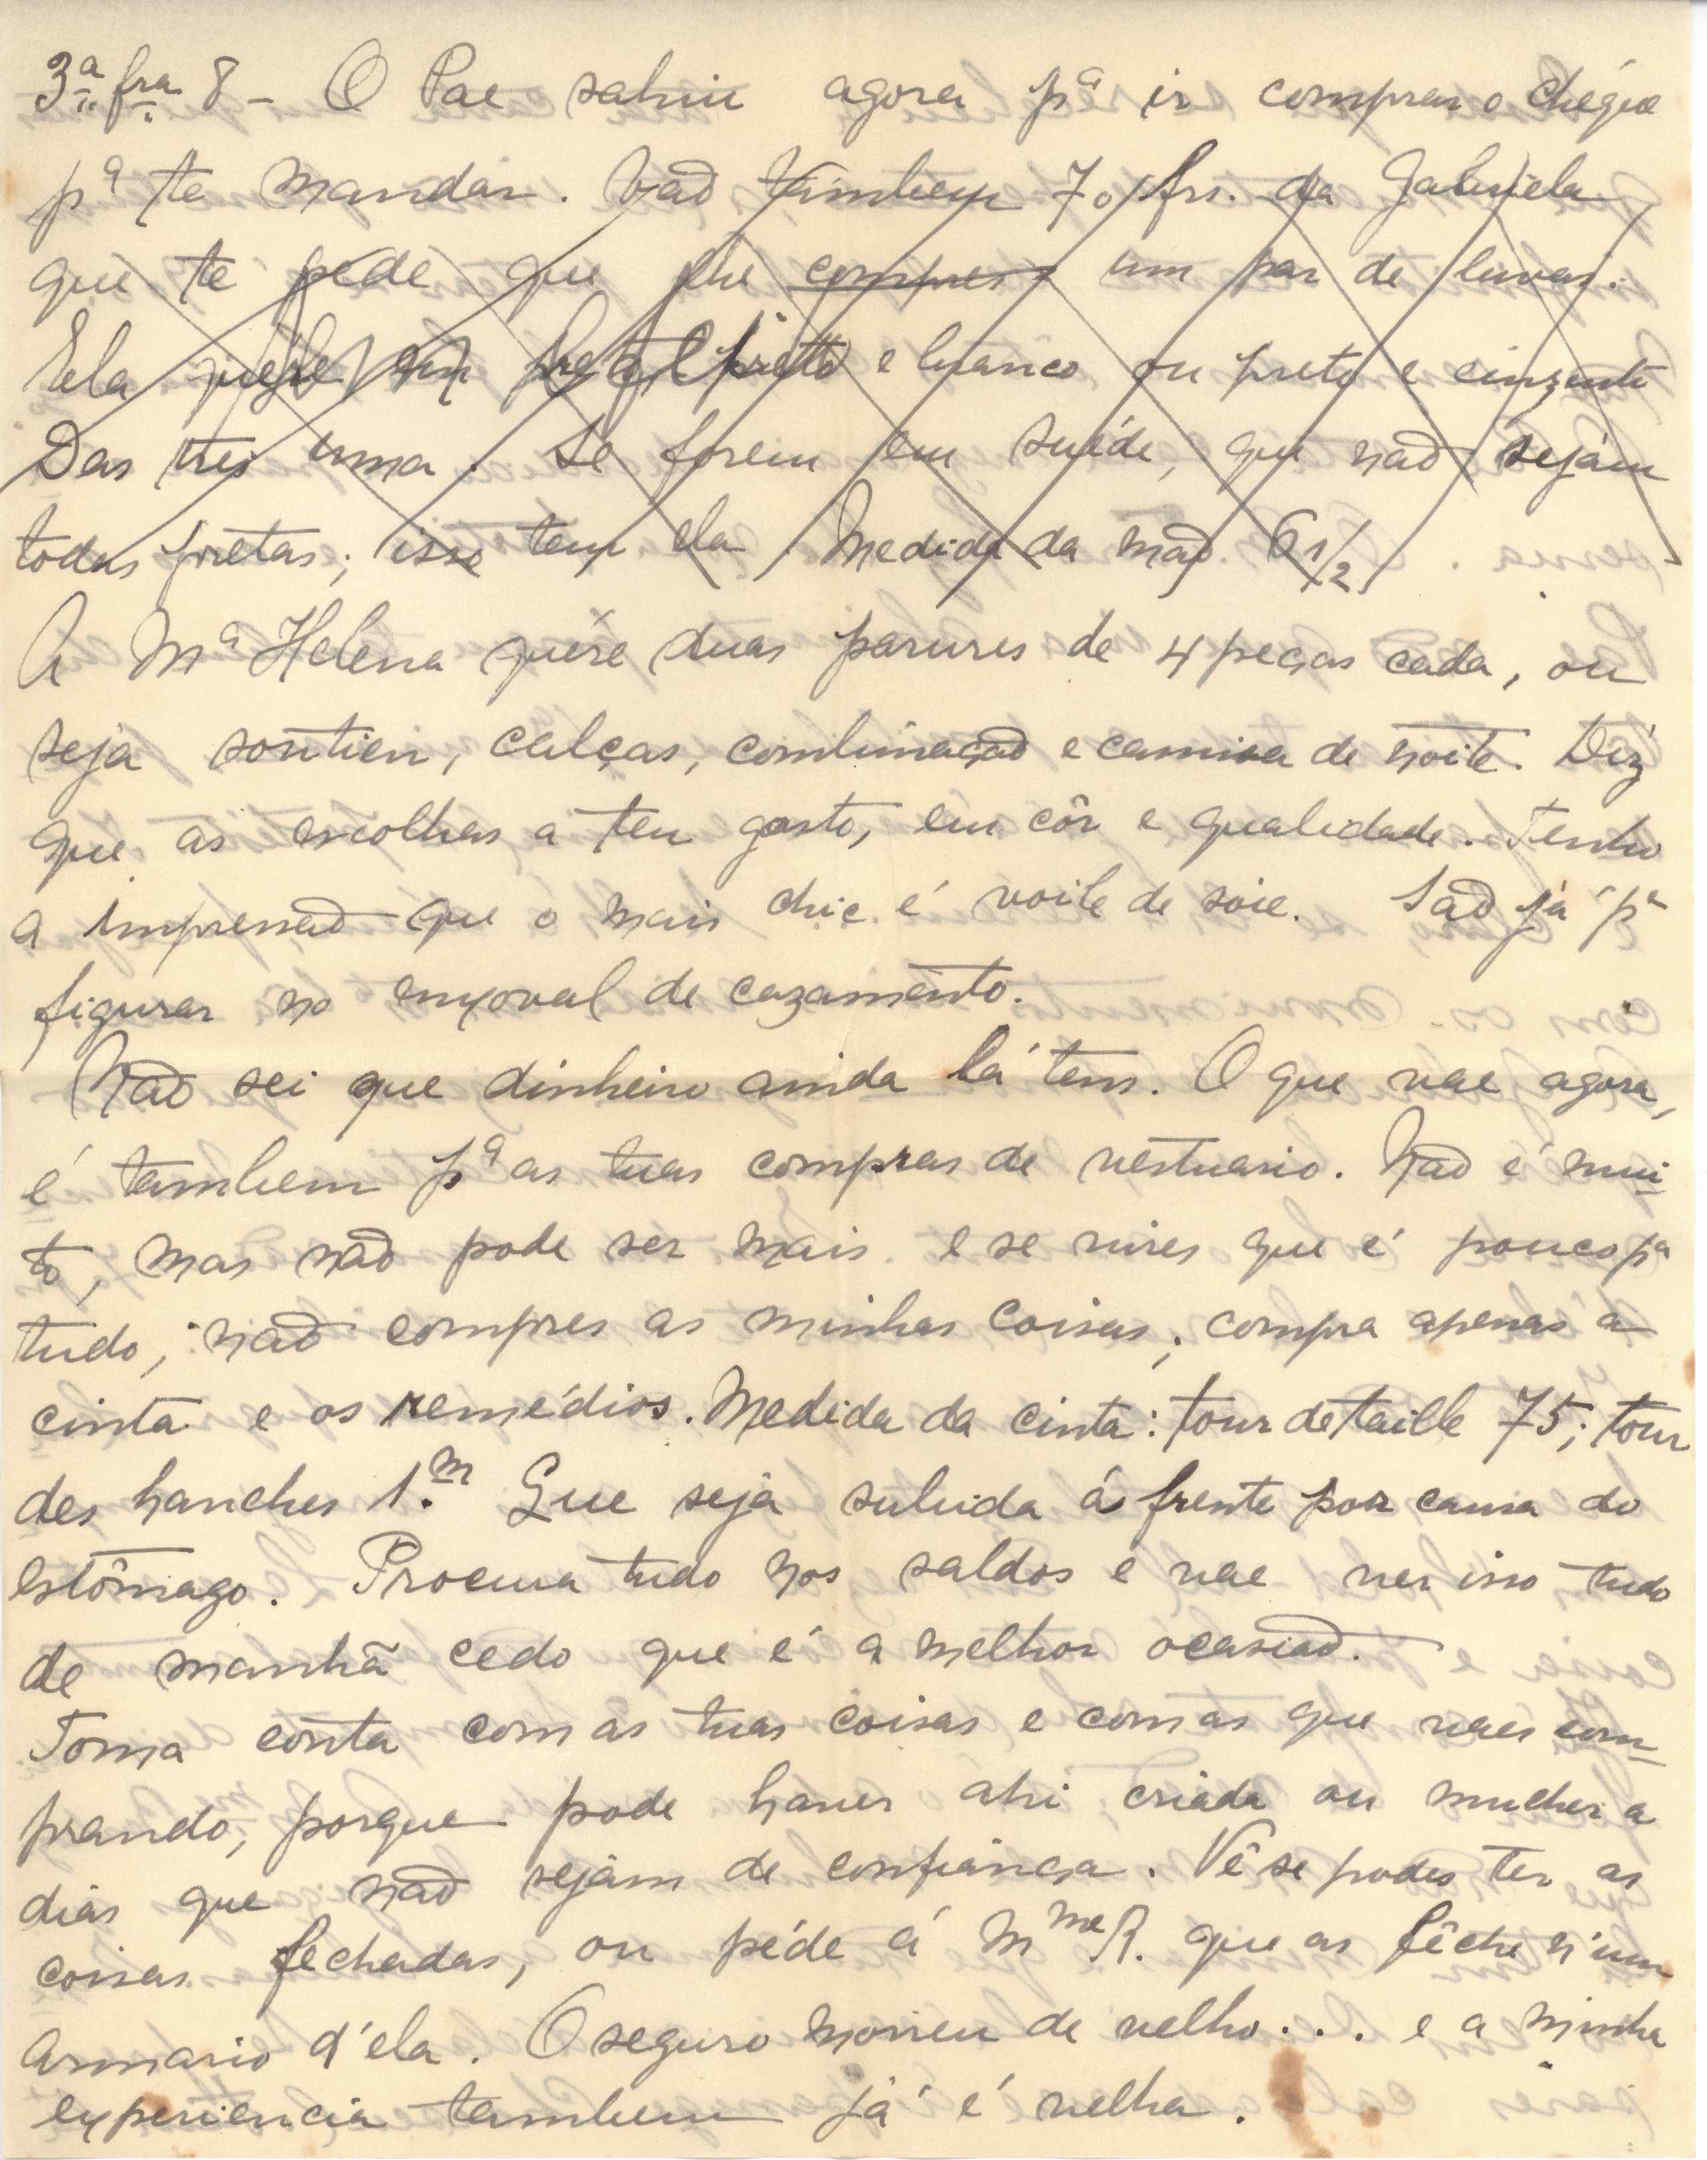 3ª fra 8 - O Pae sahiu agora pª ir comprar o chéque
pª te mandar. Vão tambem 70 frs. da Gabriela
que te péde que lhe compres um par de luvas.
Ela em preto e branco ou preto e cinzento
Das tres uma. Se forem em suéde, que não sejam
todas pretas; isso tem ela. Medida da mão 6 1/2
A Mª Helena quére duas parures de 4 peças cada, ou
seja soutien, calças, combinação e camisa de noite. Diz
que as escolhas a teu gosto, em côr e qualidade. Tenho
a impressão que o mais chic é voile de soie. São já pª
figurar no enxoval de cazamento.
Não sei que dinheiro ainda lá tens. O que vae agora,
é tambem pª as tuas compras de vestuario. Não é mui-
to, mas não pode ser mais e se vires que é pouco pª
tudo, não compres as minhas coisas; compra apenas a
cinta e os remédios. Medida da cinta: tour de taille 75; tour
des hanches 1.m Que seja subida á frente por causa do
estômago. Procura tudo nos saldos e vae ver isso tudo
de manhã cedo que é a melhor ocasião.
Toma conta com as tuas coisas e com as que vaes com-
prando, porque pode haver ahi criada ou mulher a
dias que não sejam de confiança. Vê se podes ter as
coisas fechadas, ou péde á Mme R. que as fêche n'um
armario d'ela. O seguro morreu de velho... e a minha
experiencia tambem já é velha.